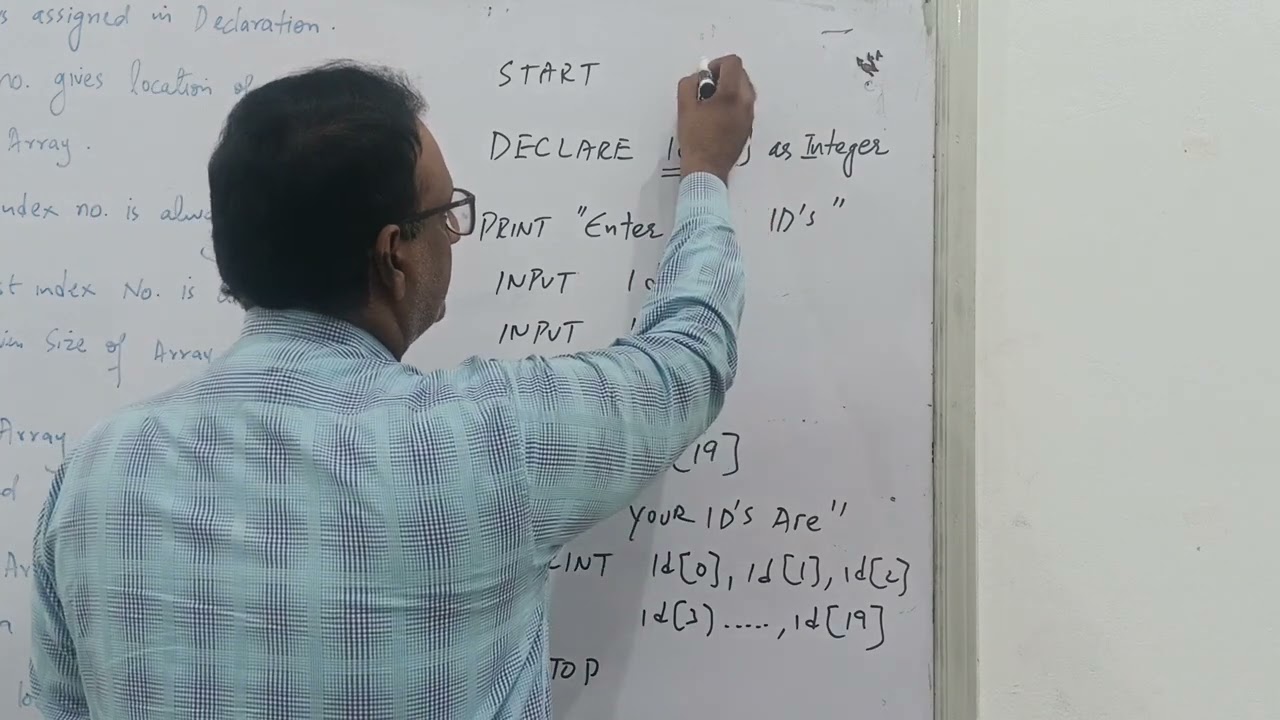 s assigned in Declaration.
no. gives location of
Array.
ndex no. is alwa
st index No. is
Size of Array
Array
Ar
START
DECLARE as Integer
PRINT "Enter ID's"
INPUT
INPUT
[19]
YOUR ID's Are"
INT Id[0], Id[1], Id[2]
Id[3)....., Id[19]
TOP